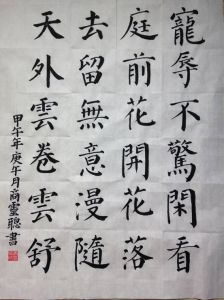 寵辱不驚閑看
庭前花開花落
去留無意漫隨
天外雲卷雲舒
甲午年庚午月商靈聰書